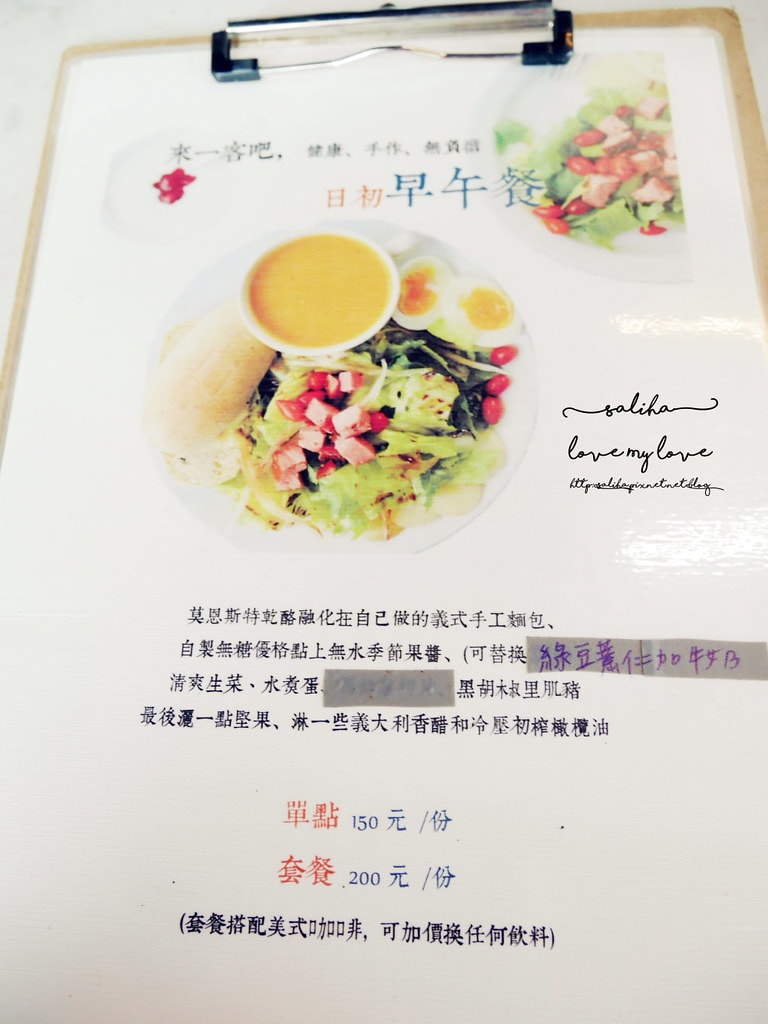 來一客吧, 健康、手作、無負擔
日初早午餐
saliha
love my love
http:saliha.pixnet.net/blog
莫恩斯特乾酪融化在自己做的義式手工麵包、
自製無糖優格點上無水季節果醬、(可替換 綠豆薏仁加牛奶
清爽生菜、水煮蛋、 黑胡椒里肌豬
最後灑一點堅果、淋一些義大利香醋和冷壓初榨橄欖油
單點 150 元 /份
套餐 200 元 /份
(套餐搭配美式咖啡, 可加價換任何飲料)